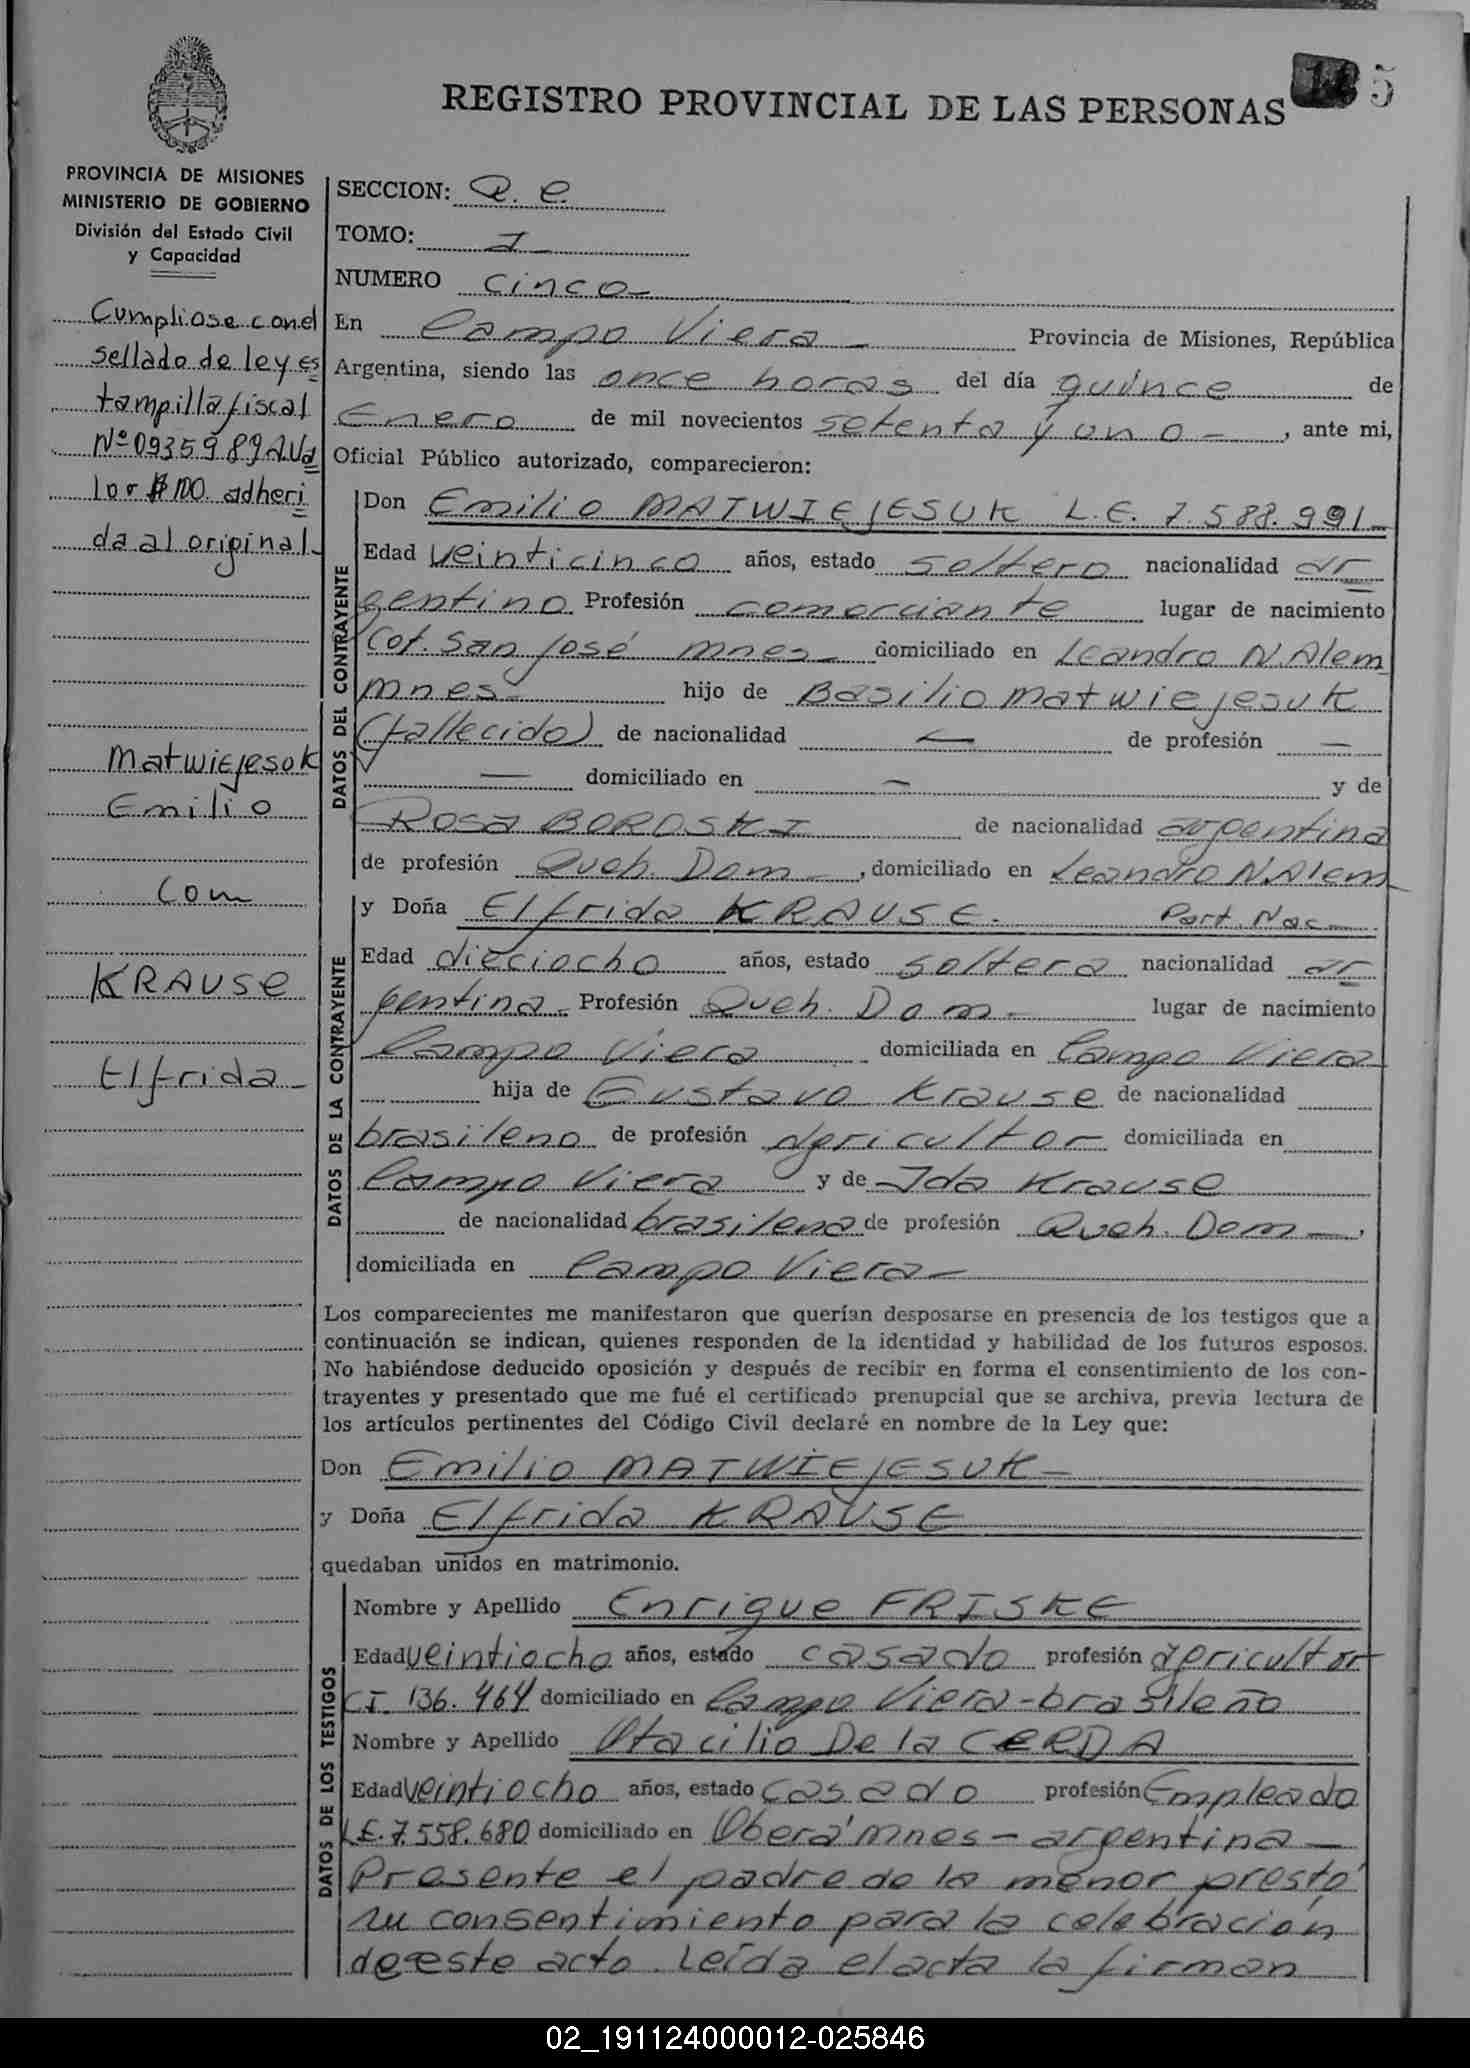 REGISTRO PROVINCIAL DE LAS PERSONAS
5
PROVINCIA DE MISIONES
MINISTERIO DE GOBIERNO
División del Estado Civil
y Capacidad
Cumpliose con el
sellado de ley es
tampilla fiscal
Nº 0935989 Va
lor $ 100. adheri
da al original
Matwiejesuk
Emilio
Com
KRAUSE
Elfrida
SECCION: R. e.
TOMO: I
NUMERO Cinco
En Campo Viera Provincia de Misiones, República
Argentina, siendo las once horas del día quince de
Enero de mil novecientos setenta y uno , ante mi,
Oficial Público autorizado, comparecieron:
DATOS DEL CONTRAYENTE
Don Emilio MATWIEJESUK L.E. 7.588.991
Edad veinticinco años, estado soltero nacionalidad ar
gentino Profesión comerciante lugar de nacimiento
Col. San José mnes domiciliado en Leandro N. Alem
mnes hijo de Basilio Matwiejesuk
(fallecido) de nacionalidad — de profesión —
— domiciliado en — y de
Rosa BOROSKI de nacionalidad argentina
de profesión Queh. Dom , domiciliado en Leandro N. Alem
DATOS DE LA CONTRAYENTE
y Doña Elfrida KRAUSE. Part. Nac
Edad dieciocho años, estado soltera nacionalidad ar
gentina Profesión Queh. Dom lugar de nacimiento
Campo Viera domiciliada en Campo Viera
hija de Gustavo Krause de nacionalidad
brasileno de profesión agricultor domiciliada en
Campo Viera y de Ida Krause
de nacionalidad brasilena de profesión Queh. Dom ,
domiciliada en Campo Viera
Los comparecientes me manifestaron que querían desposarse en presencia de los testigos que a
continuación se indican, quienes responden de la identidad y habilidad de los futuros esposos.
No habiéndose deducido oposición y después de recibir en forma el consentimiento de los con-
trayentes y presentado que me fué el certificado prenupcial que se archiva, previa lectura de
los artículos pertinentes del Código Civil declaré en nombre de la Ley que:
Don Emilio MATWIEJESUK
y Doña Elfrida KRAUSE
quedaban unidos en matrimonio.
DATOS DE LOS TESTIGOS
Nombre y Apellido Enrique FRISKE
Edad veintiocho años, estado casado profesión agricultor
C.I. 136.464 domiciliado en Campo Viera - brasileño
Nombre y Apellido Otacilio De la CERDA
Edad veintiocho años, estado casado profesión Empleado
L.E. 7.558.680 domiciliado en Oberá mnes - argentina
Presente el padre de la menor prestó
su consentimiento para la celebracion
de este acto. Leída el acta la firman
02_191124000012-025846